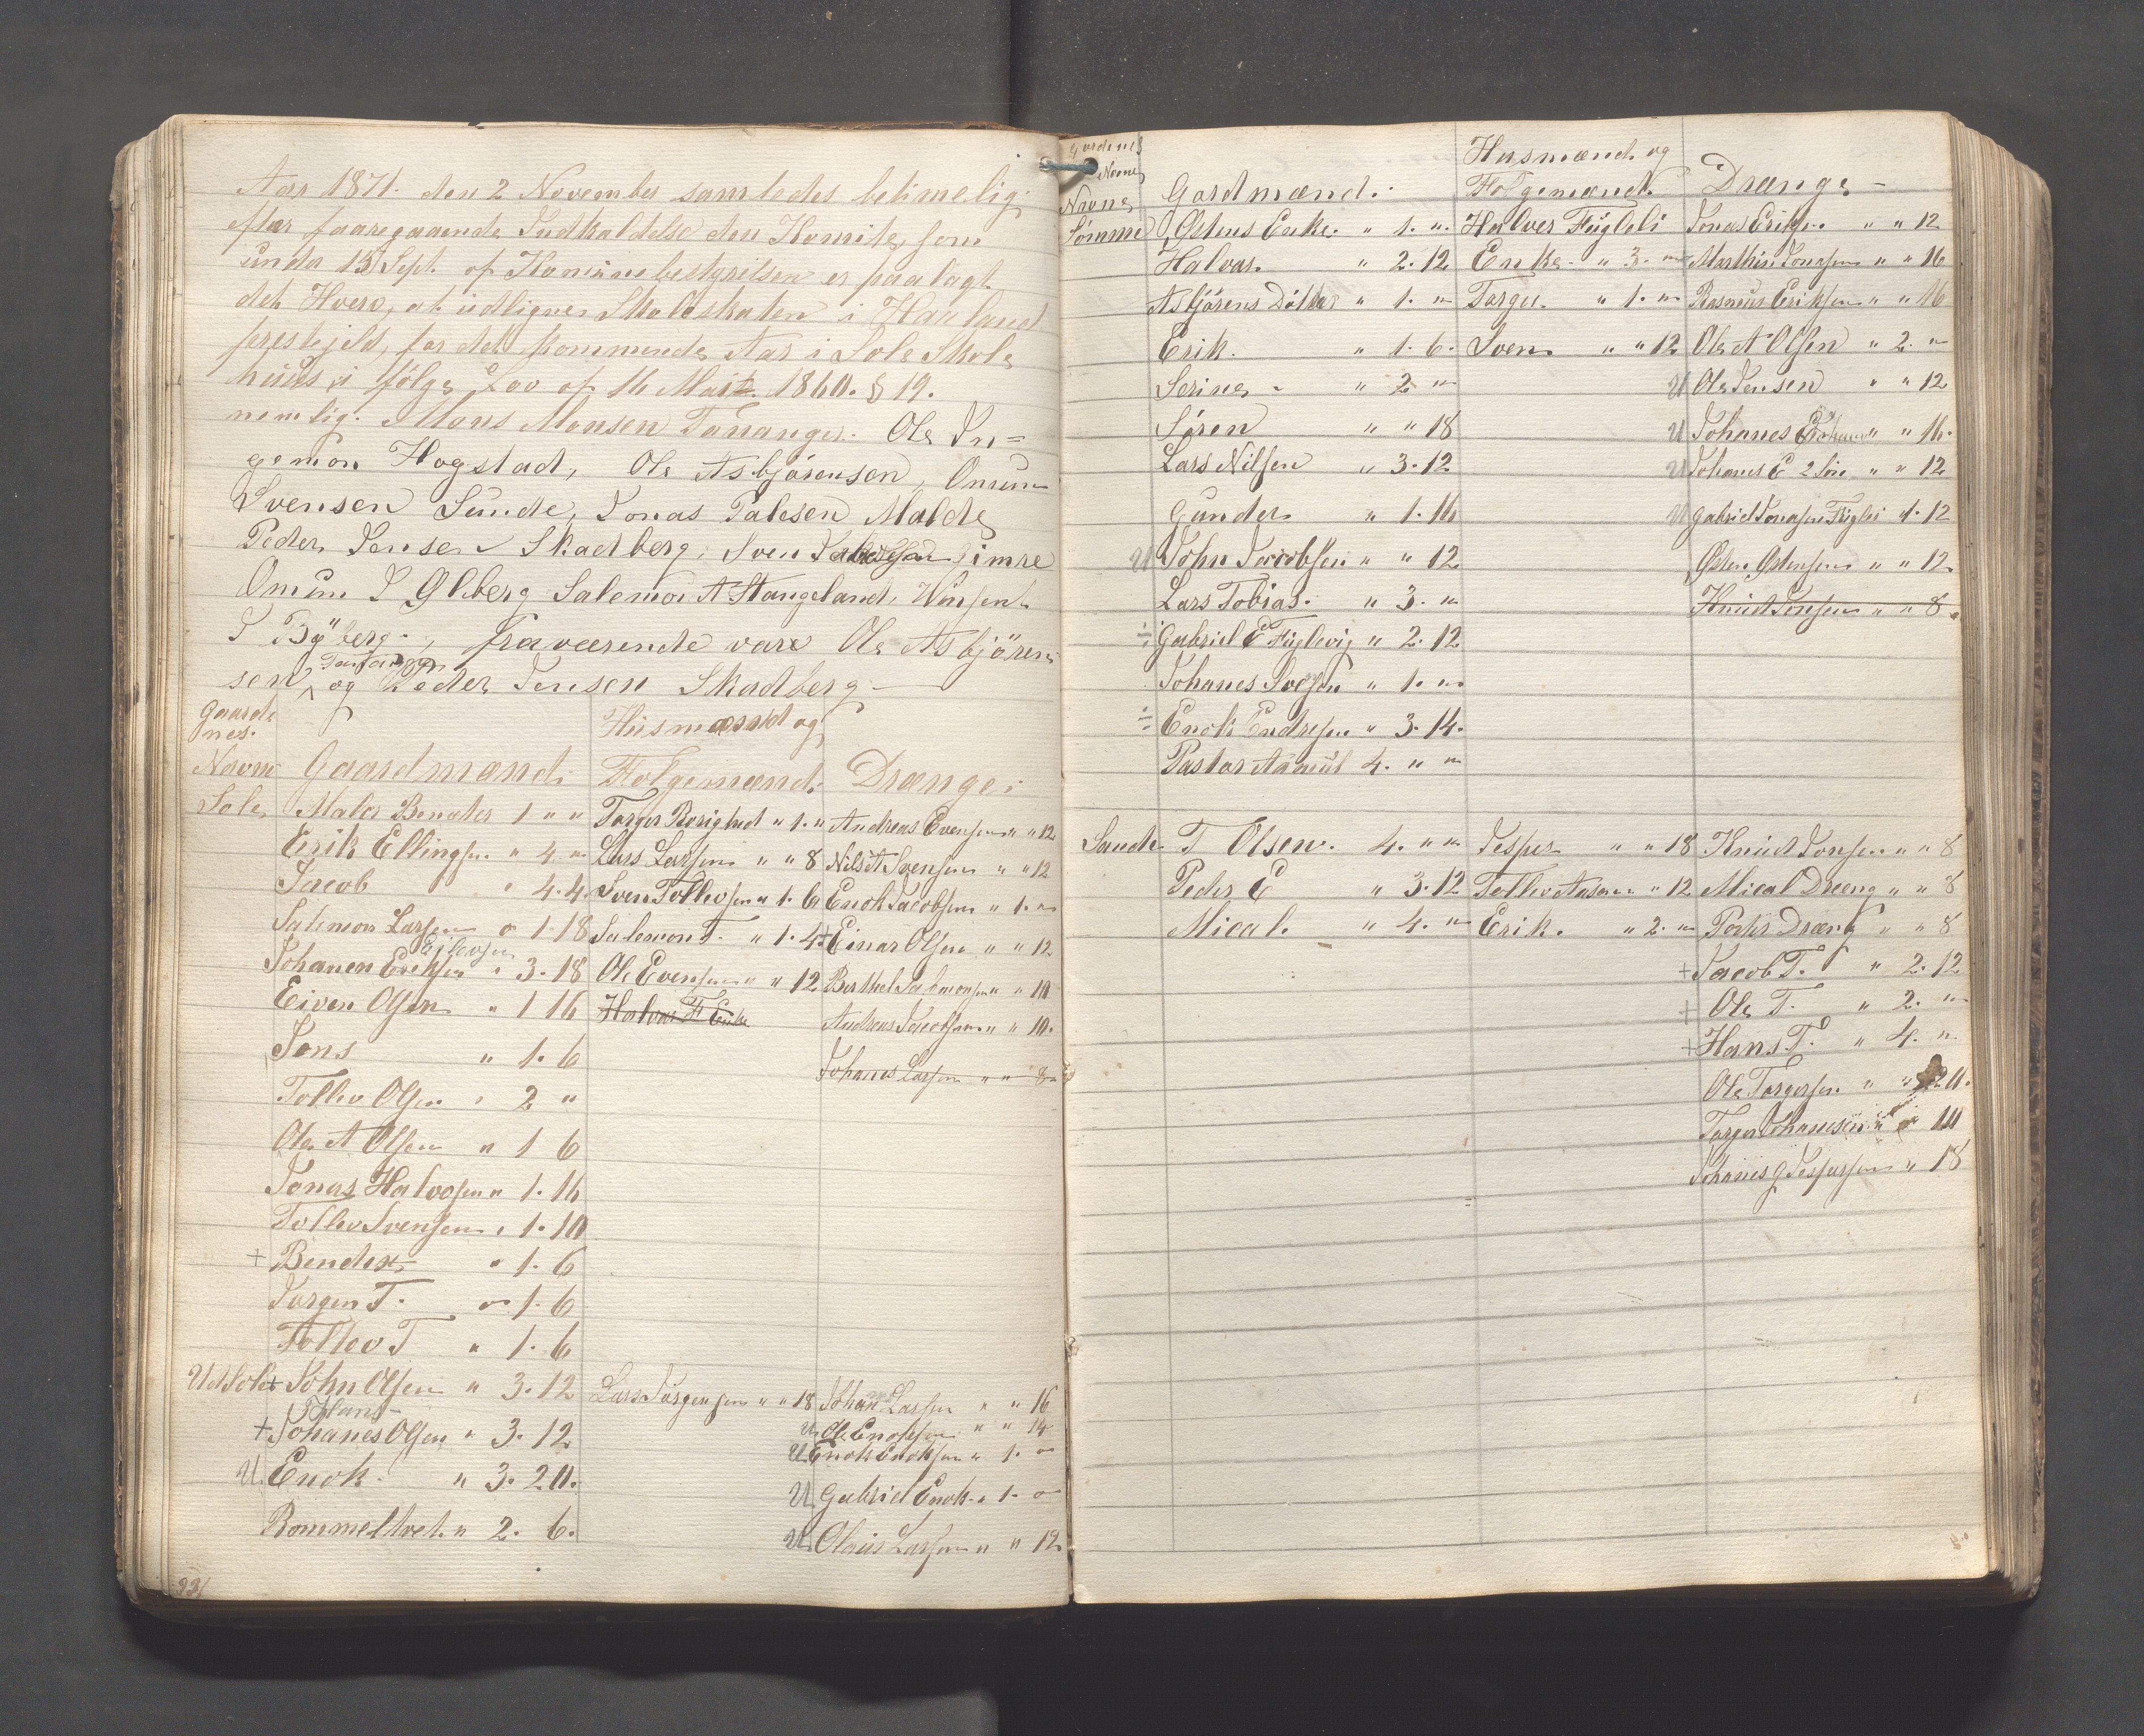 Aar 1871. den 2 November samledes betimelig
efter foaregaaende Indkaldelse den Komite, som
under 15 Sept. af Komünebestyrelsen er paalagt
det Hverv, at üdligne Skoleskaten i Haaland
prestejeld, for det kommende Aar i Sole Skole
hüüs i fölge Lov af 16 Mai 1860. § 19.
nemlig. Mons Monsen Tananger. Ole In=
gemon Hogstad, Ole Asbjörensen, Omun
Svensen Sünde, Jonas Palesen Malde
Peder Jensen Skadberg, Sven Simre
Omün I Gleberg Salemon A Stangeland, Winsent
I Byberg., fraværende vare Ole Asbjören
Tananger
sen, og Peder Jensen Skadberg —
Gaarde
nes.
Navne Gaardmænd: Hüsmænd og Folgemænd: Drænge:
Sole Maler Benates 1 " " Torger Rosighed " 1. " Andreas Evensen " " 12
Erik Ellingsen " 4 " Lars Larsen " " 8 Nils A Svensen " " 12
Jacob " 4. 4 Sven Tollevsen " 1. 6 Enok Jacobsen " 1. "
Salemon Larsen " 1. 18 Salemon T. " 1. 4 + Einar Olsen " " 12
Eilevsen
Johanen Eriksen " 3. 18 Ole Evensen " " 12 Berthel Salemonsen " " 10
Eiven Olsen " 1 16 Halvor F Enke Andreas Jacobsen " " 10.
Jons " 1. 6 Johanes Larsen " " 8
Tollev Olsen " 2 "
Ole A Olsen " 1 6
Jonas Halvosen " 1. 16
Tollev Svensen " 1. 10
+ Bendix " 1. 6
Jorgen T. " 1. 6
Tollev T " 1. 6
UdSole + John Olsen " 3. 12 Lars Jörgensen " " 18 Johan Larsen " " 16
Hans
+ Johanes Olsen " 3. 12 U Ole Enoksen " " 14
U Enok Enoksen " 1. "
U. Enok. " 3. 20. U Gabriel Enok. " 1. "
Rommeltvet " 2. 6. U. Olaüs Larsen " " 12
93/
Gardenes
Navne
Navne Gardmænd: Husmænd og Folgemænd. Drænge —
Sömme Östens Enke. " 1. " Halver Fügleli Jonas Eriksen " " 12
Halvor. " 2. 12 Enke. " 3. " Marthin Jonasen " " 16
Asbjörens Dötter " 1. " Torger. " 1. " Rasmüs Eriksen " " 16
Erik. " 1. 6. Sven " " 12 Ole A Olsen " 2. "
Serine " 2 " U Ole Jensen " " 12
Sören " " 18 U Johanes " " 16.
Lars Nilsen " 3. 12 U Johanes E 2 Sön " " 12
Gunder " 1. 16 U Gabriel Jonasen Füglei " 1. 12
U John Jacobsen " " 12 Östen Östensen " " 12
Lars Tobias. " 3. " Knüd Jonsen " " 8
÷ Gabriel E Füglevig " 2. 12
Johanes Svesen " 1. "
÷ Enok Endresen " 3. 14.
Pastor 4. " "
Sande T Olsen. 4. " " Jesper " " 18 Knüd Jonsen " " 8
Peder E " 3. 12 Tollev Aasen " " 12 Mical Dreeng " " 8
Mical. " 4. " Erik. " 2. " Peder Dræng " " 8
+ Jacob T. " 2. 12
+ Ole T. " 2. "
+ Hans T. " 4. "
Ole Torgersen " " 20.
Torger Johanesen " " 10
Johanes G Jespersen " 18